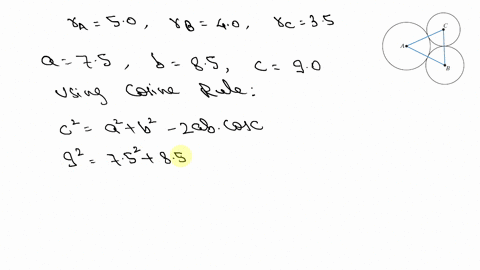 rA = 5.0 , rB = 4.0 , rC = 3.5
a = 7.5 , b = 8.5 , c = 9.0
Using Cosine Rule:
c² = a² + b² - 2ab.cosc
9² = 7.5² + 8.5
A
B
C